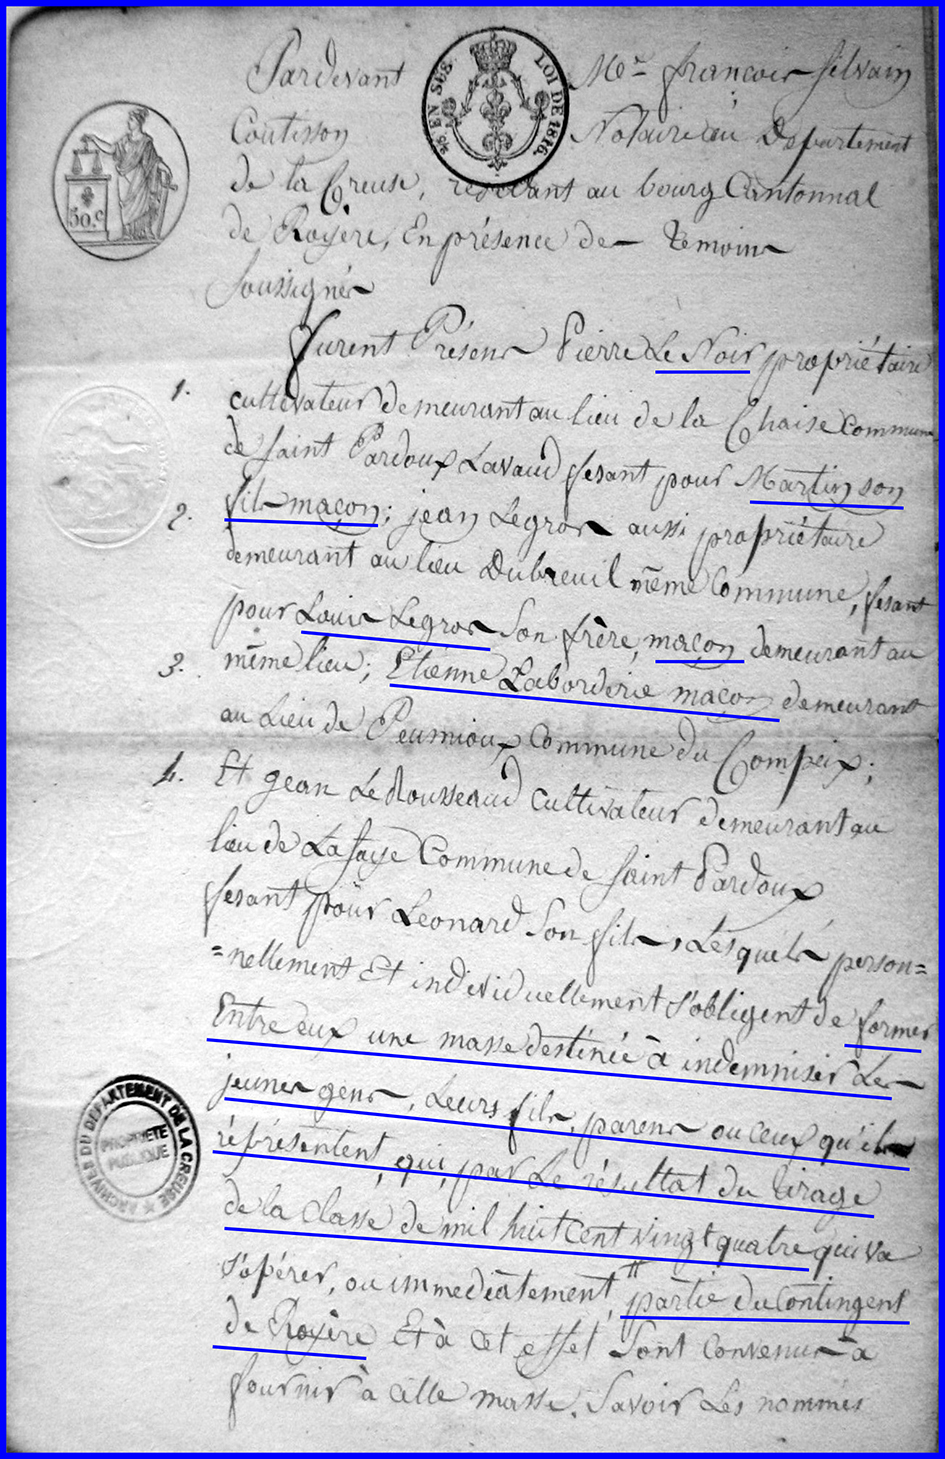 Pardevant Me francois silvain
Coutisson Notaire au Departement
de la Creuse, résidant au bourg Cantonnal
de Royère, En présence des temoins
soussignés
furent Présens Pierre Le Noir propriétaire
1. cultivateur demeurant au lieu de la Chaise commune
de saint Pardoux Lavaud fesant pour Martin son
2. fils maçon; jean Legros aussi propriétaire
demeurant au lieu Dubreuil même Commune, fesant
pour Louis Legros son frère, maçon demeurant au
3. même lieu; Etienne Laborderie maçon demeurant
au Lieu de Peumioux Commune du Compeix;
4. Et gean Le Rousseaud cultivateur demeurant au
lieu de Lafaye Commune de saint Pardoux
fesant pour Leonard son fils, Lesquels person=
=nellement Et individuellement s'obligent de former
Entre eux une masse destinée à indemniser Les
jeunes gens, Leurs fils, parens ou ceux qu'ils
réprésentent, qui, par Le résultat du tirage
de la classe de mil huit cent vingt quatre qui va
s'opérer, ou immediatement, partie du Contingent
de Royère Et à cet effet sont convenus à
fournir à cette masse, Savoir Les nommés
50.c
EN SUS
LOI DE 1816.
ARCHIVES DU DÉPARTEMENT DE LA CREUSE
PROPRIÉTÉ
PUBLIQUE